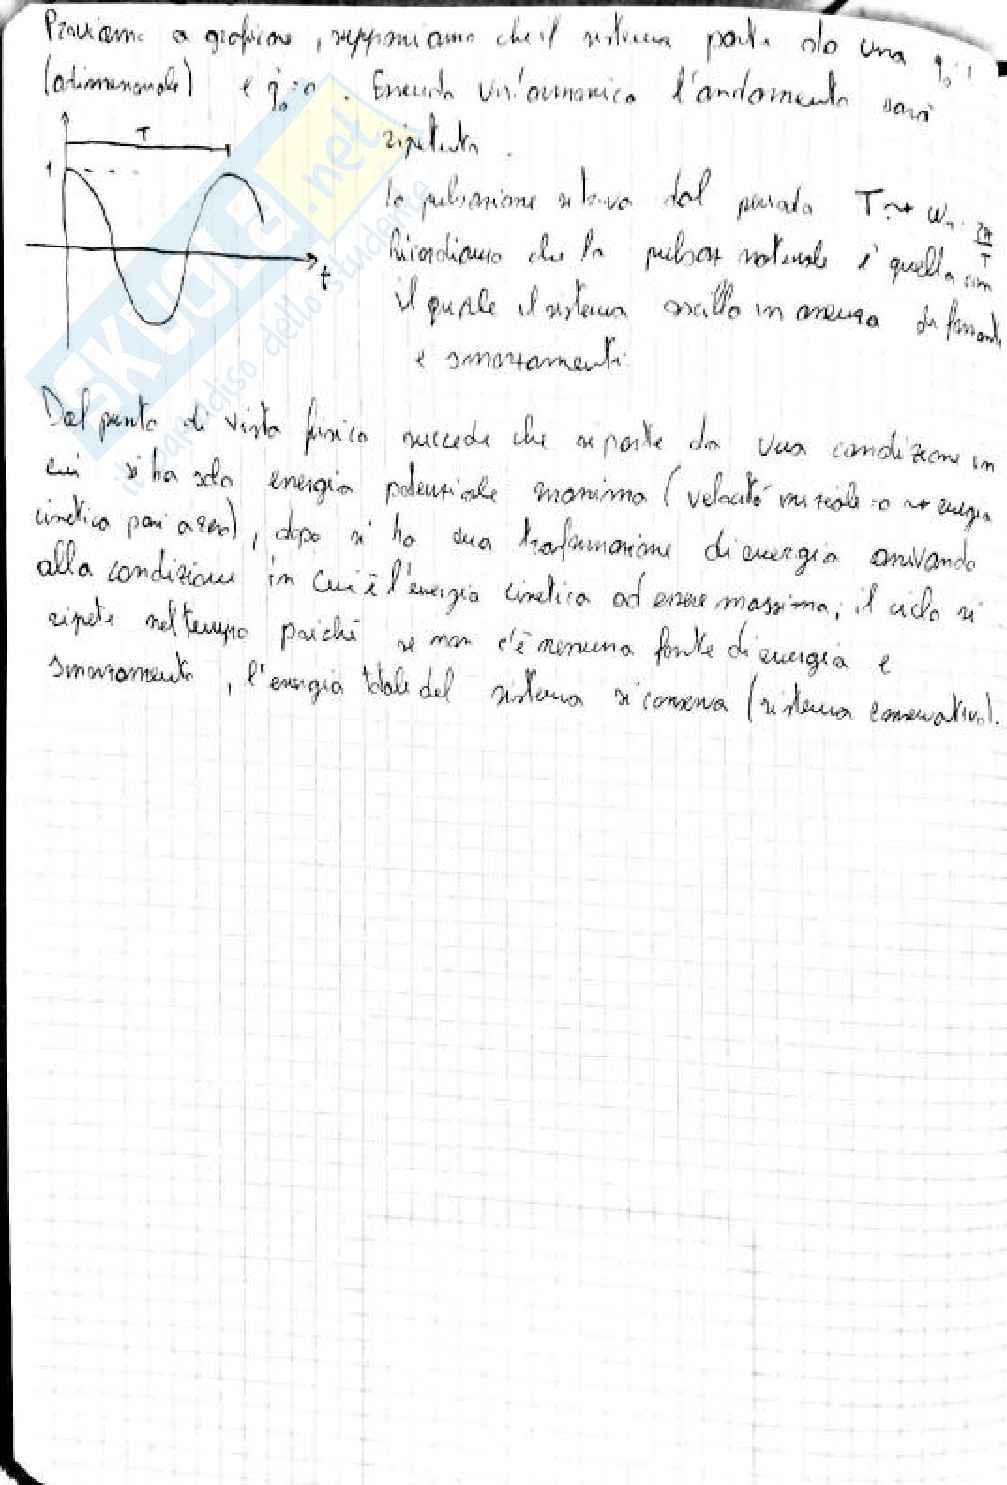 Proviamo a graficare, supponiamo che il sistema parta da una q₀=1
(adimensionale) e q̇₀=0. Essendo un'armonica l'andamento sarà
ripetuto.
T
1
t
la pulsazione si trova dal periodo T ⇝ ωₙ = 2π/T
Ricordiamo che la pulsaz naturale è quella con
il quale il sistema oscilla in assenza di forzanti
e smorzamenti.
Dal punto di vista fisico succede che si parte da una condizione in
cui si ha solo energia potenziale massima (velocità iniziale = 0 ⇝ energia
cinetica pari a zero), dopo si ha una trasformazione di energia arrivando
alla condizione in cui è l'energia cinetica ad essere massima; il ciclo si
ripete nel tempo poiché se non c'è nessuna fonte di energia e
smorzamento, l'energia totale del sistema si conserva (sistema conservativo).
SKUOLA.net
il paradiso dello studente